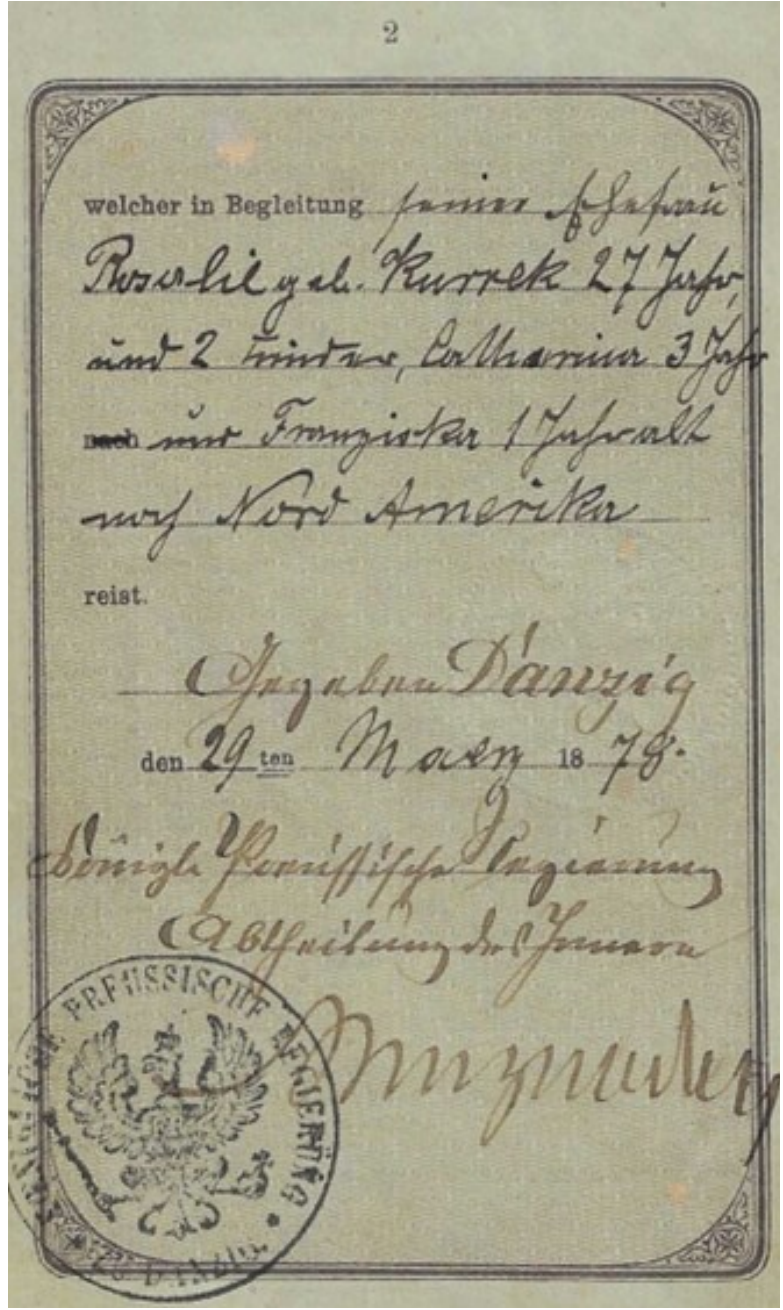 2
welcher in Begleitung seiner Ehefrau
Rosalie geb. Kurrek 27 Jahr,
und 2 Kinder, Catharina 3 Jahr
nach und Franziska 1 Jahr alt
nach Nord Amerika
reist.
Gegeben Danzig
den 29 ten Maerz 1878.
Königl. Preussische Regierung
Abtheilung des Innern
KÖNIGLICHE PREUSSISCHE REGIERUNG * ZU DANZIG *